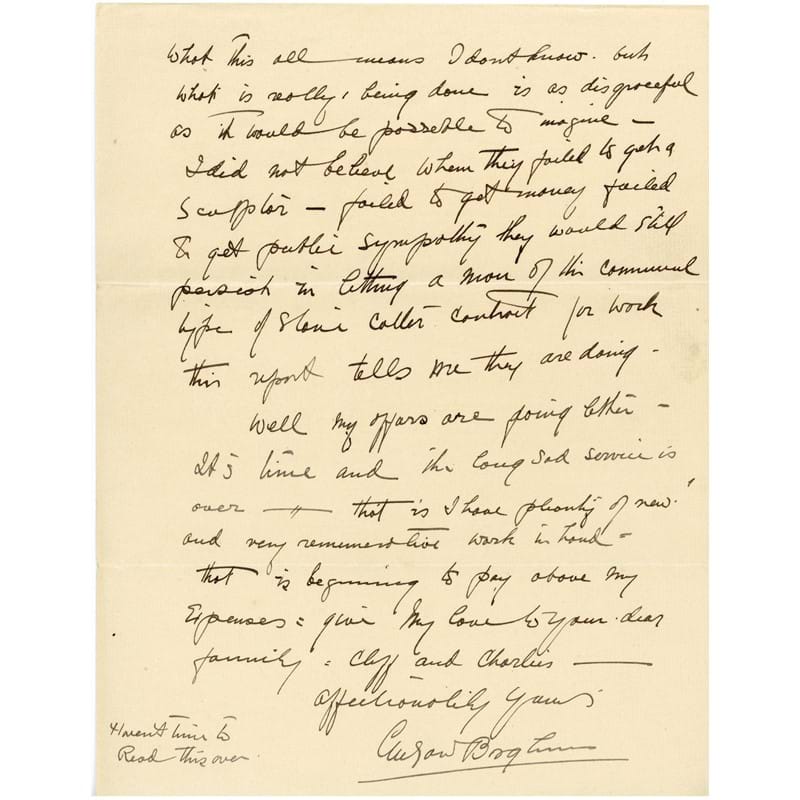 What this all means I dont know. but
What is really, being done is as disgraceful
as it would be possible to imagine —
I did not believe when they failed to get a
Sculptor — failed to get money failed
to get public sympathy they would still
persist in letting a man of the
type of Stone Cutter contract for work
this report tells me they are doing —
Well my affairs are going better —
It's time and the long sad service is
over — " — that is I have plenty of new
and very remunerative work in hand =
that is beginning to pay above my
Expenses = give my love to your dear
family = Cliff and Charlie —
affectionately yours
Gutzon Borglum
Havent time to
Read this over.